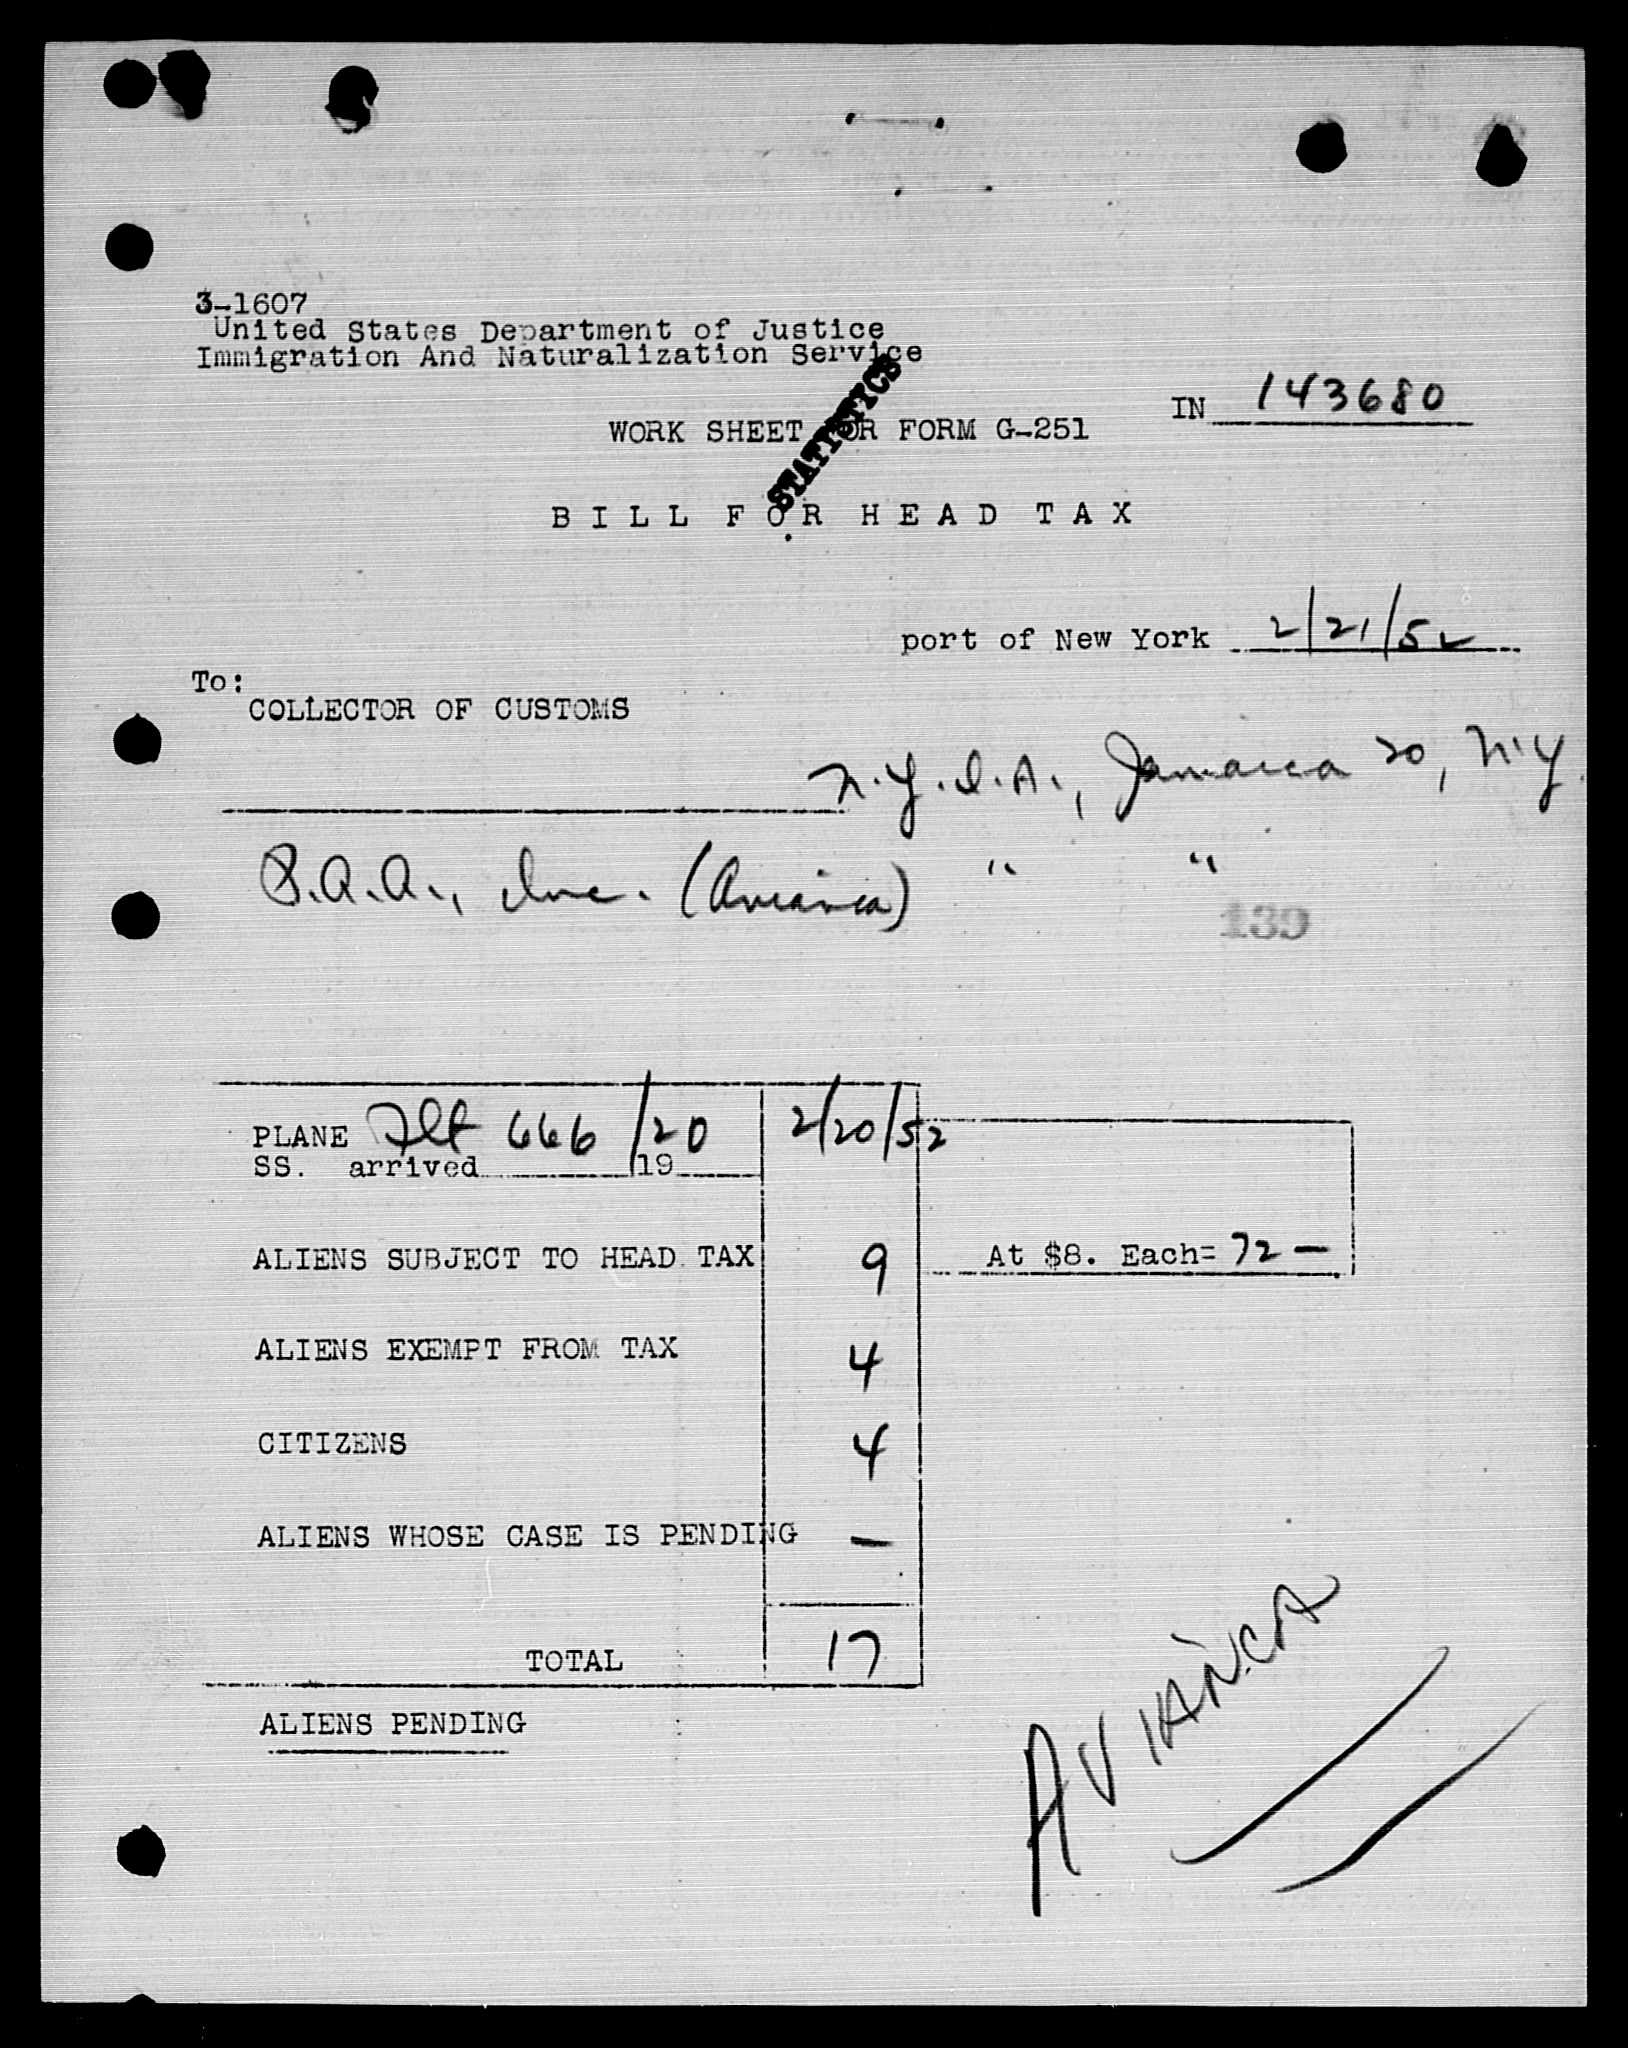 3-1607
United States Department of Justice
Immigration And Naturalization Service
STATISTICS
IN 143680
WORK SHEET FOR FORM G-251
BILL FOR HEAD TAX
port of New York 2/21/52
To:
COLLECTOR OF CUSTOMS
N.Y.I.A., Jamaica 20, N.Y.
P.A.A., Inc. (Avianca) " "
139
PLANE Flt 666/20 2/20/52
SS. arrived 19
ALIENS SUBJECT TO HEAD TAX 9 At $8. Each= 72 —
ALIENS EXEMPT FROM TAX 4
CITIZENS 4
ALIENS WHOSE CASE IS PENDING —
TOTAL : 17
ALIENS PENDING :
AVIANCA